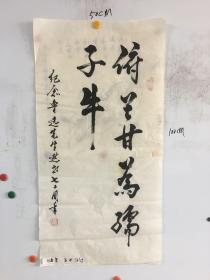 50CM
100CM
俯首甘为孺
子牛
纪念鲁迅先生逝世七十周年